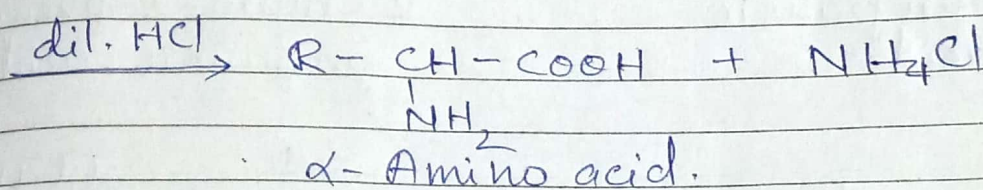 dil. HCl → R - CH - COOH + NH4Cl
NH2
α - Amino acid.